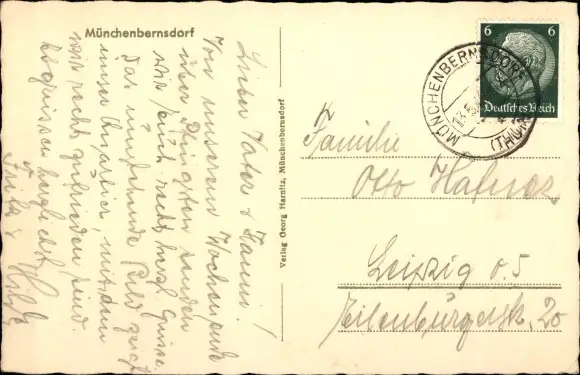 Münchenbernsdorf
Lieber Vater & Hanni!
Von unserem Wochenende
über Pfingsten senden
wir Euch recht herzl. Grüsse.
Das umstehende Bild zeigt
unser Quartier, mit dem
wir recht zufrieden sind.
Es grüssen herzlichst
&
Verlag Georg Harnitz, Münchenbernsdorf
6 6
Deutsches Reich
MÜNCHENBERNSDORF
(THÜR)
Familie
Otto
Leipzig O.5
Eilenburgerstr. 20